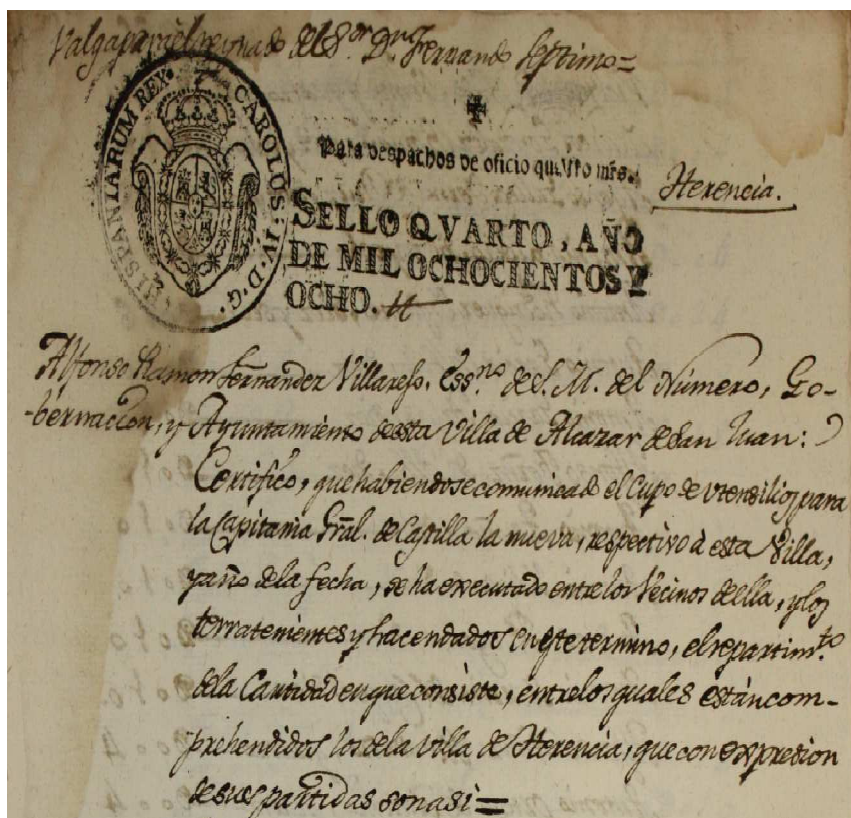 Valga para el reynado del S.or D.n Fernando Septimo=
HISPANIARUM REX. CAROLUS. IV. D. G.
Para despachos de oficio quatro mrs.
Herencia.
SELLO QVARTO, AÑO
DE MIL OCHOCIENTOS Y
OCHO.
Alfonso Ramon Fernandez Villarejo. Ess.no de S. M. del Número, Go-
-bernacion, y Ayuntamiento de esta Villa de Alcazar de San Juan:
Certifico, que habiendose comunicado el Cupo de utensilios para
la Capitania Gral. de Castilla la nueva, respectivo à esta Villa,
y año de la fecha, se ha executado entre los Vecinos de ella, y los
terratenientes y hacendados en este termino, el repartim.to
de la Cantidad en que consiste, entre los quales están com-
prehendidos los de la Villa de Herencia, que con expresion
de sus partidas son asi=